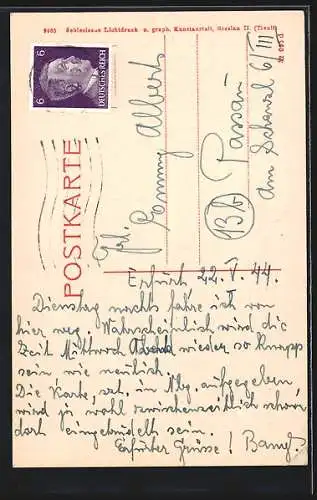 9405 Schlesische Lichtdruck u. graph. Kunstanstalt, Breslau II. (Tivoli)
6 DEUTSCHES REICH 6
POSTKARTE
Frl. Emmy Albert
13b Passau
Am Schanzl 6/III
Erfurt 22. V. 44.
Dienstag nachts fahre ich von
hier weg. Wahrscheinlich wird die
Zeit Mittwoch wieder so knapp
sein wie neulich.
Die Karte, in Nbg. aufgegeben
wird ja wohl zwischenzeitlich schon
dort eingebüttelt sein.
Erfurter Grüsse!